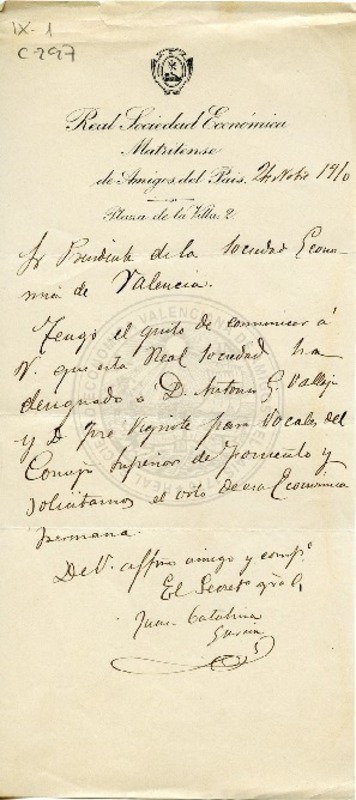 IX-1
C-297
Real Sociedad Económica
Matritense
de Amigos del País. 24 Nobre 1910
Plaza de la Villa 2
Sr Presidente de la Sociedad Econo-
mica de Valencia.
Tengo el gusto de comunicar á
V. que esta Real Sociedad ha
designado á D. Antonio G. Vallejo
y D. José Vignote para Vocales del
Consejo Superior de Fomento y
solicitamos el voto de esa Económica
hermana.
De V. affmo amigo y compº.
El Secretº gral,
Juan Catalina
García